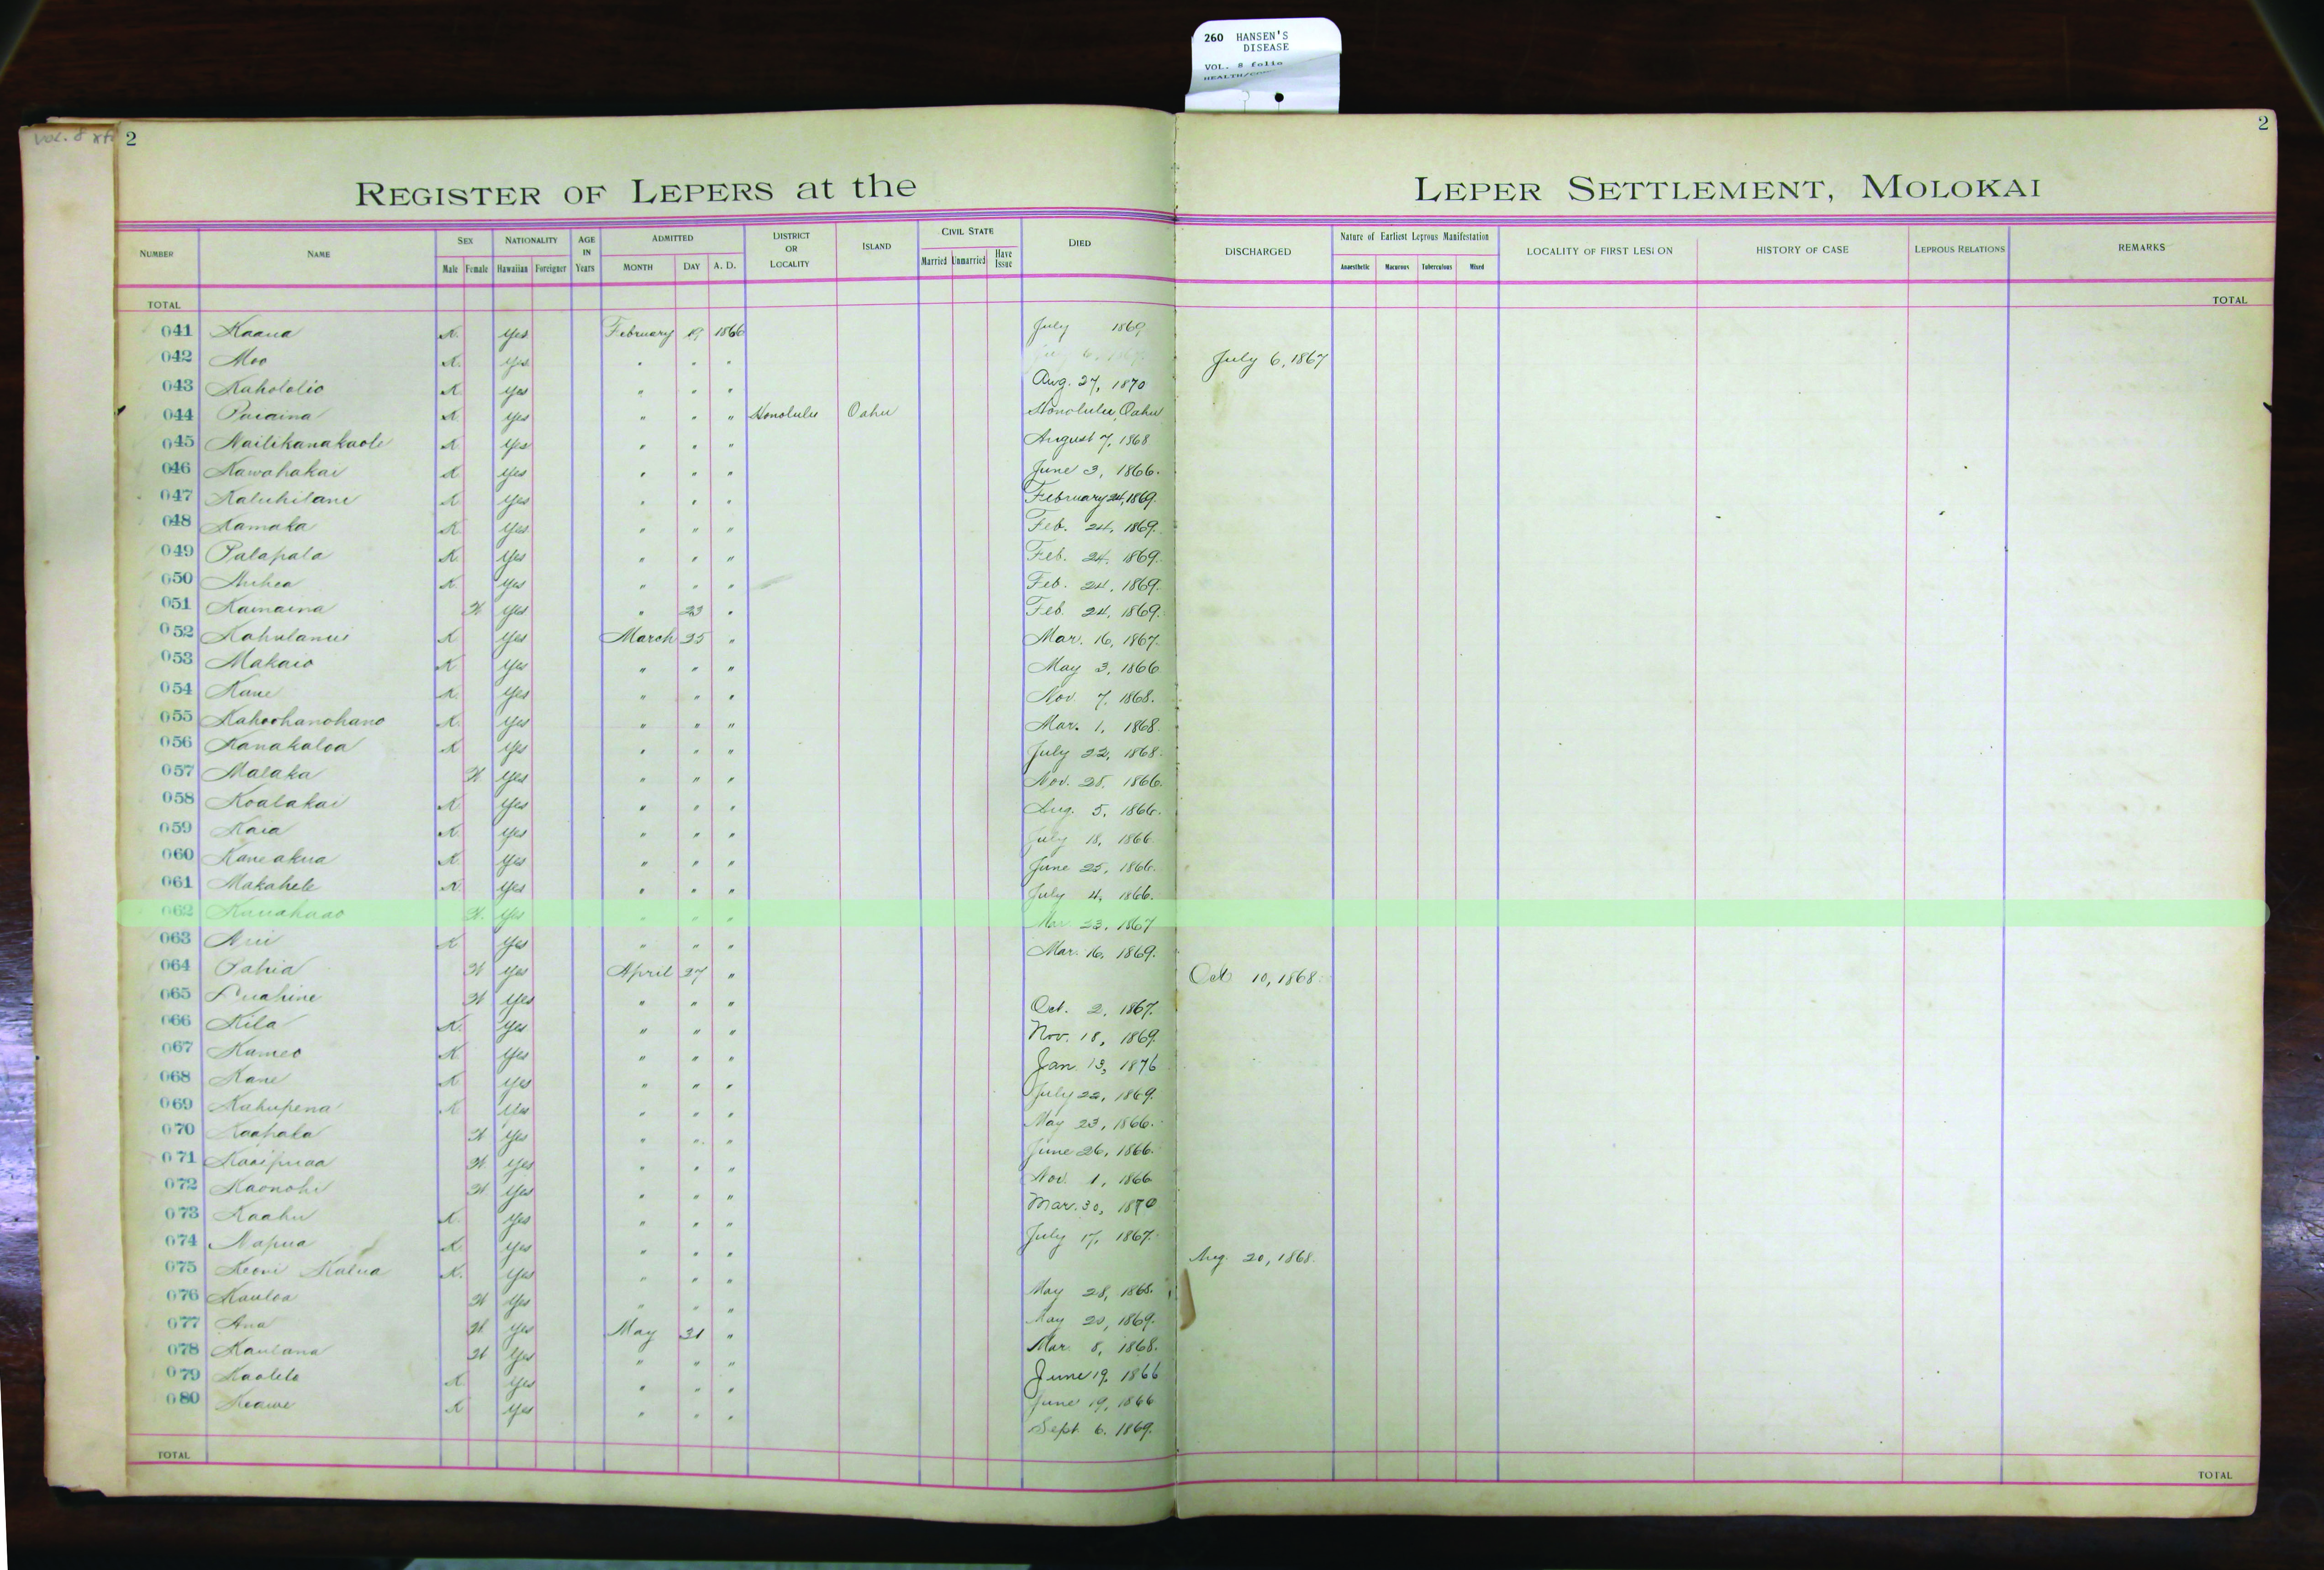 260 HANSEN'S
DISEASE
VOL. 8 folio
Vol. 8
2
2
REGISTER OF LEPERS at the LEPER SETTLEMENT, MOLOKAI
NUMBER NAME SEX NATIONALITY AGE IN Years ADMITTED DISTRICT OR LOCALITY ISLAND CIVIL STATE DIED DISCHARGED Nature of Earliest Leprous Manifestation LOCALITY OF FIRST LESION HISTORY OF CASE LEPROUS RELATIONS REMARKS
Male Female Hawaiian Foreigner MONTH DAY A. D. Married Unmarried Have Issue Anaesthetic Macurous Tuberculous Mixed
TOTAL TOTAL
041 Kaaua K. Yes February 19 1866 July 1869
042 Moo K. Yes " " " July 6, 1867
043 Kahololio K Yes " " " Aug. 27, 1870
044 K Yes " " " Honolulu Oahu Honolulu, Oahu
045 Nailikanakaole K Yes " " " August 7, 1868
046 Kawahakai K Yes " " " June 3, 1866.
047 Kaluhilani K Yes " " " February 24, 1869.
048 Kamaka K Yes " " " Feb. 24, 1869.
049 Palapala K Yes " " " Feb. 24, 1869.
050 K Yes " " " Feb. 24, 1869.
051 Kamaina W Yes " 23 " Feb. 24, 1869.
052 Kahulanui K Yes March 25 " Mar. 16, 1867.
053 Makaio K Yes " " " May 3, 1866
054 Kane K. Yes " " " Nov. 7, 1868.
055 Kahoohanohano K. Yes " " " Mar. 1, 1868.
056 Kanakaloa K Yes " " " July 22, 1868.
057 Malaka W Yes " " " Nov. 28, 1866.
058 Koalakai K Yes " " " Aug. 5, 1866.
059 Kaia K. Yes " " " July 18, 1866
060 Kaneakua K. Yes " " " June 25, 1866.
061 Makahele K. Yes " " " July 4, 1866.
062 W. Yes " " " Mar 23, 1867
063 K Yes " " " Mar. 16, 1869.
064 Pahia W Yes April 27 " Oct 10, 1868.
065 Puahine W Yes " " " Oct. 2, 1867.
066 Kila K. Yes " " " Nov. 18, 1869.
067 Kameo K Yes " " " Jan. 13, 1876
068 Kane K Yes " " " July 22, 1869.
069 Kahupena K Yes " " " May 23, 1866.
070 Kaahala W Yes " " " June 26, 1866.
071 Kaaipuaa W. Yes " " " Nov. 1, 1866
072 Kaonohi W Yes " " " Mar. 30, 1870
073 Kaahu K. Yes " " " July 17, 1867.
074 Napua K. Yes " " " Aug. 20, 1868.
075 Keoni Kalua K. Yes " " " May 28, 1868.
076 Kauloa W Yes " " " May 20, 1869.
077 Ana W. Yes May 31 " Mar. 8, 1868.
078 Kaulana W Yes " " " June 19, 1866
079 Kaolelo K Yes " " " June 19, 1866
080 Keawe K Yes " " " Sept. 6. 1869.
TOTAL TOTAL